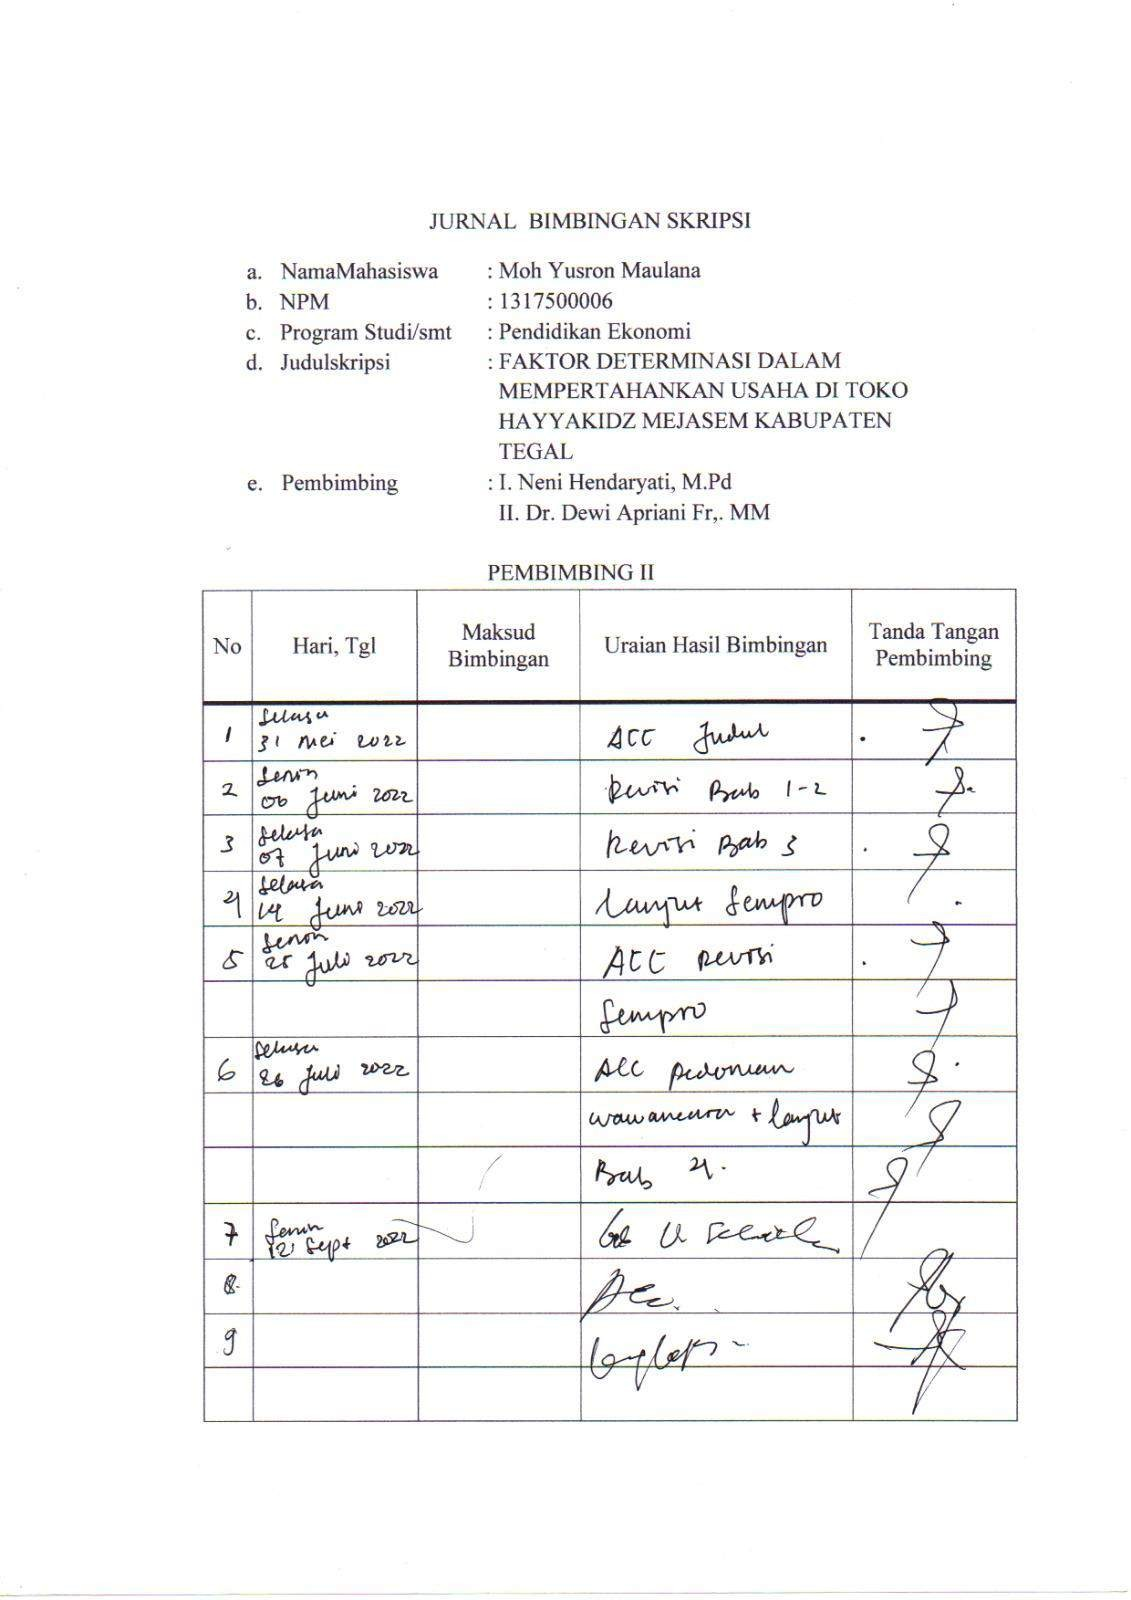 JURNAL BIMBINGAN SKRIPSI
a. NamaMahasiswa : Moh Yusron Maulana
b. NPM : 1317500006
c. Program Studi/smt : Pendidikan Ekonomi
d. Judulskripsi : FAKTOR DETERMINASI DALAM
MEMPERTAHANKAN USAHA DI TOKO
HAYYAKIDZ MEJASEM KABUPATEN
TEGAL
e. Pembimbing : I. Neni Hendaryati, M.Pd
II. Dr. Dewi Apriani Fr,. MM
PEMBIMBING II
No Hari, Tgl Maksud Bimbingan Uraian Hasil Bimbingan Tanda Tangan Pembimbing
Selasa
1 31 Mei 2022 ACC Judul
Senin
2 06 Juni 2022 Revisi Bab 1-2
Selasa
3 07 Juni 2022 Revisi Bab 3
Selasa
4 14 Juni 2022 Lanjut Sempro
Senin
5 25 Juli 2022 ACC Revisi
Sempro
Selasa
6 26 Juli 2022 ACC Pedoman
wawancara + lanjut
Bab 4.
Senin
7 12 Sept 2022
8. Acc.
9